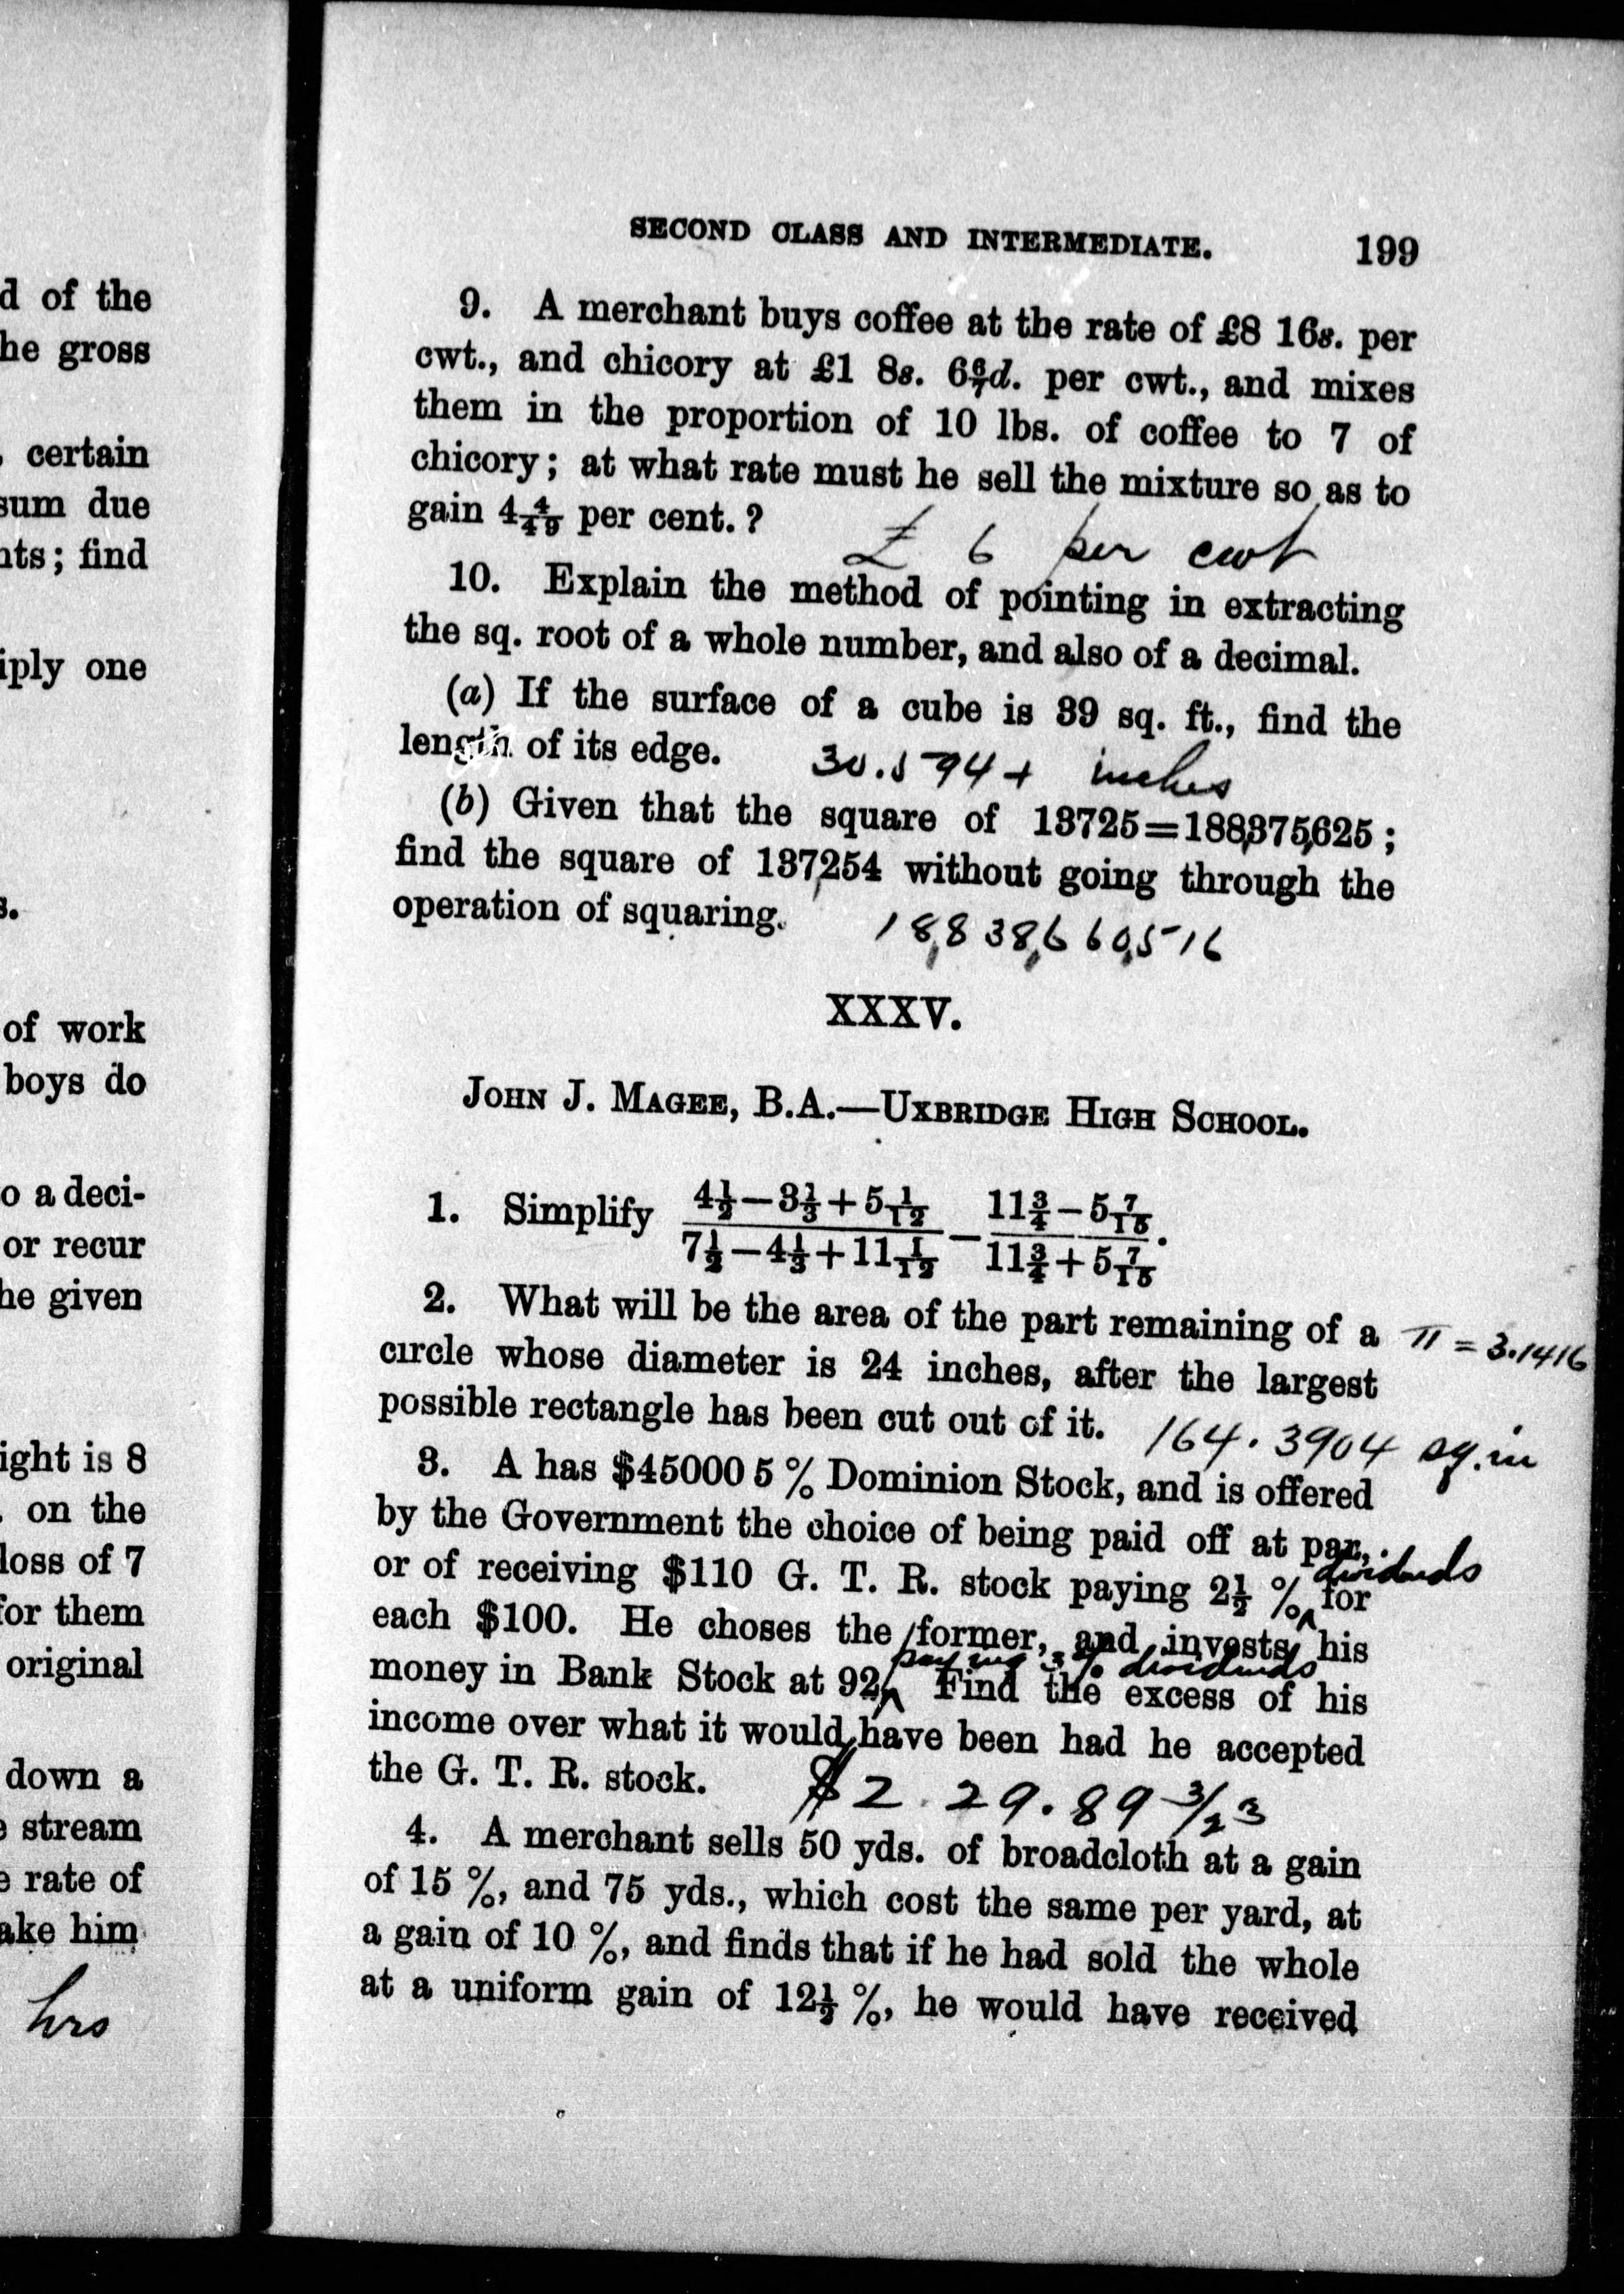 d of the
he gross
certain
sum due
nts; find
iply one
s.
of work
boys do
o a deci-
or recur
he given
ight is 8
. on the
loss of 7
for them
original
down a
e stream
e rate of
ake him
hrs
SECOND CLASS AND INTERMEDIATE. 199
9. A merchant buys coffee at the rate of £8 16s. per
cwt., and chicory at £1 8s. 6 6/7d. per cwt., and mixes
them in the proportion of 10 lbs. of coffee to 7 of
chicory; at what rate must he sell the mixture so as to
gain 4 4/49 per cent.?
£ 6 per cwt
10. Explain the method of pointing in extracting
the sq. root of a whole number, and also of a decimal.
(a) If the surface of a cube is 39 sq. ft., find the
length of its edge. 30.594+ inches
(b) Given that the square of 13725=188,375,625;
find the square of 137,254 without going through the
operation of squaring. 18,838,660,516
XXXV.
JOHN J. MAGEE, B.A.—UXBRIDGE HIGH SCHOOL.
1. Simplify (4½−3⅓+5 1/12)/(7½−4⅓+11 1/12) − (11¾−5 7/15)/(11¾+5 7/15).
2. What will be the area of the part remaining of a π = 3.1416
circle whose diameter is 24 inches, after the largest
possible rectangle has been cut out of it. 164.3904 sq. in
3. A has $45000 5 % Dominion Stock, and is offered
by the Government the choice of being paid off at par,
or of receiving $110 G. T. R. stock paying 2½ % ^ dividends for
each $100. He choses the former, and invests his
money in Bank Stock at 92, ^ paying 3 % dividends Find the excess of his
income over what it would have been had he accepted
the G. T. R. stock. $229.89 3/23
4. A merchant sells 50 yds. of broadcloth at a gain
of 15 %, and 75 yds., which cost the same per yard, at
a gain of 10 %, and finds that if he had sold the whole
at a uniform gain of 12½ %, he would have received